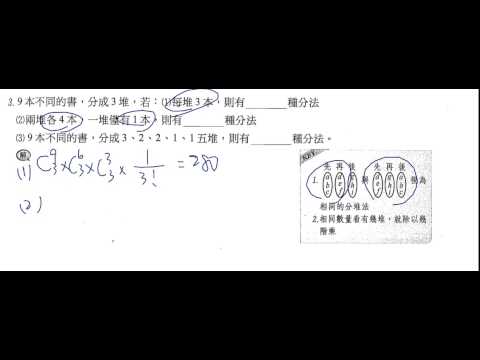 3. 9本不同的書，分成3堆，若：(1)每堆3本，則有______種分法
(2)兩堆各4本，一堆僅有1本，則有______種分法
(3) 9本不同的書，分成3、2、2、1、1五堆，則有______種分法。
解
(1) C⁹₃ × C⁶₃ × C³₃ × 1/3! = 280
(2)
KEY
先 再 後 先 再 後
1. 與 視為
相同的分堆法
2.相同數量看有幾堆，就除以幾
階乘